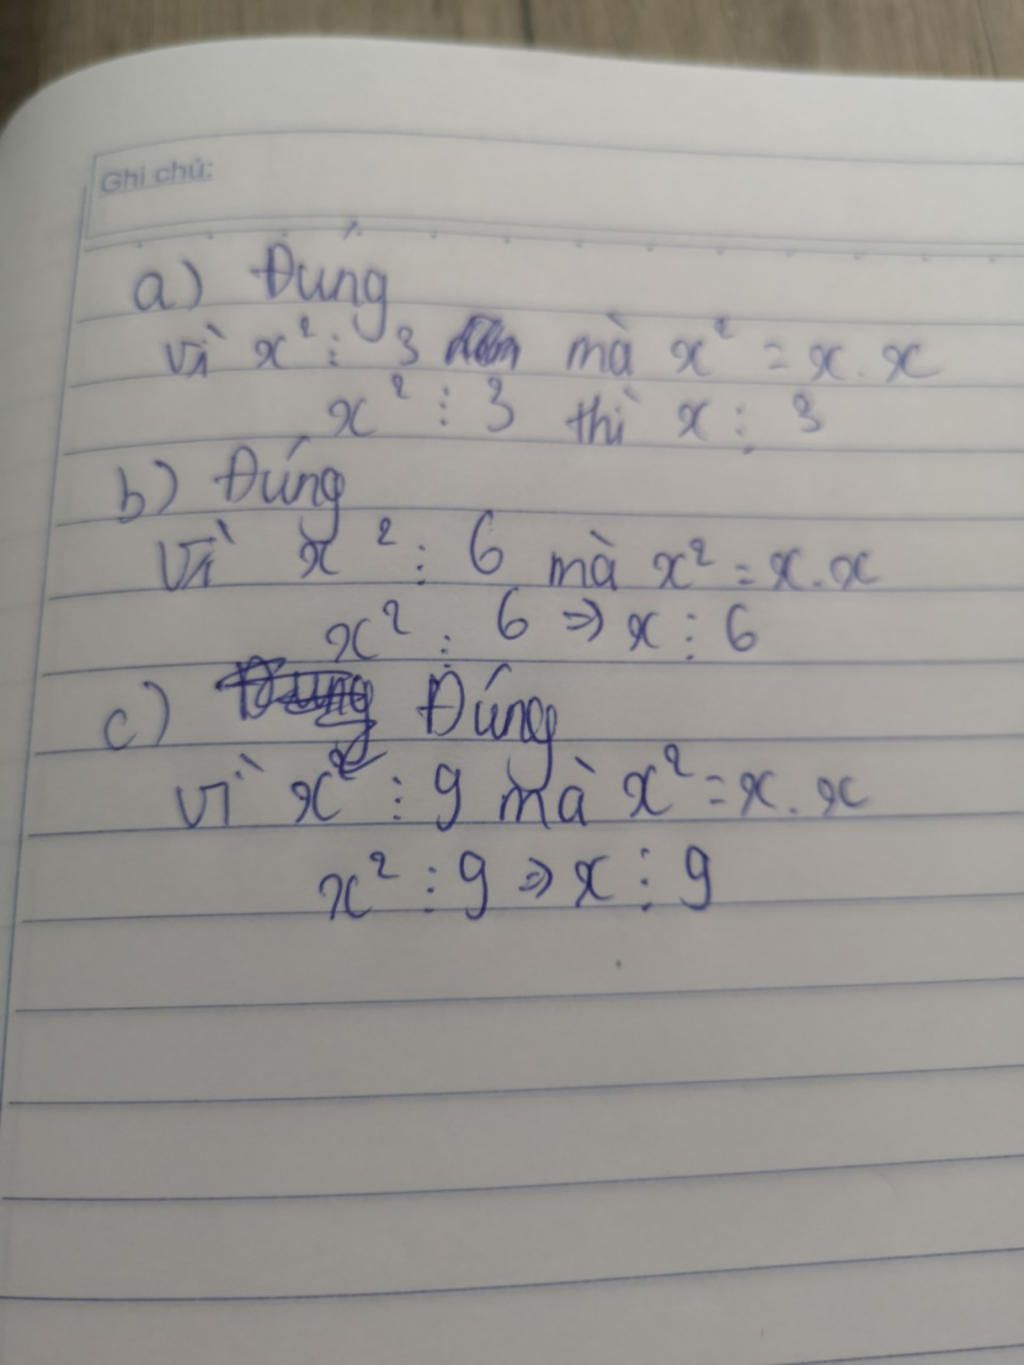 Ghi chú:
a) Đúng
Vì x² ⋮ 3 mà x² = x . x
x² ⋮ 3 thì x ⋮ 3
b) Đúng
Vì x² ⋮ 6 mà x² = x . x
x² ⋮ 6 ⇒ x ⋮ 6
c) Đúng
Vì x² ⋮ 9 mà x² = x . x
x² ⋮ 9 ⇒ x ⋮ 9